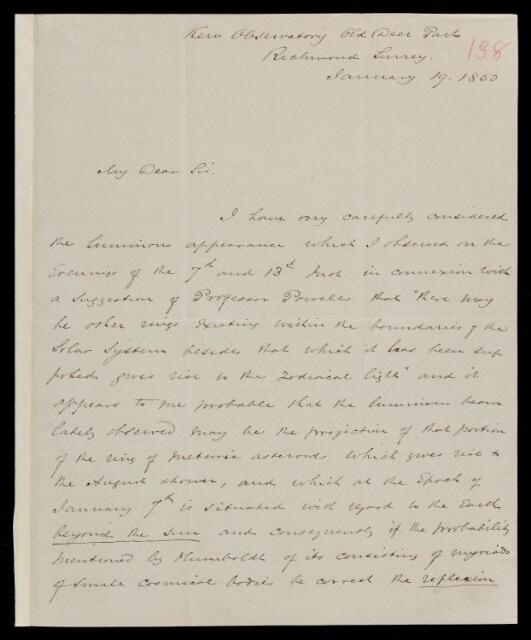 Kew Observatory Old Deer Park
138
Richmond Surrey.
January 19. 1850
My Dear Sir.
I have very carefully considered
the luminous appearance which I observed on the
Evenings of the 7th and 13th Inst in connexion with
a suggestion of Professor Powell that "there may
be other rings existing within the boundaries of the
Solar System besides that which it has been sup
posed gives rise to the Zodiacal light" and it
appears to me probable that the luminous beam
lately observed may be the projection of that portion
of the ring of meteoric asteroids which gives rise to
the August shower, and which at the Epoch of
January 7th is situated with regard to the Earth
beyond the Sun and consequently if the probability
mentioned by Humboldt of its consisting of myriads
of small cosmical bodies be correct the reflexion